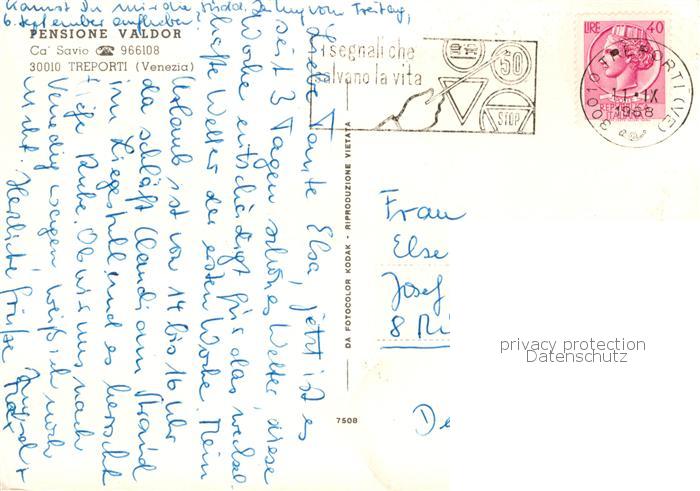 Kannst Du mir die Südd. Zeitung vom Freitag,
6. September aufheben?
PENSIONE VALDOR
Ca' Savio ☎ 966108
30010 TREPORTI (Venezia)
Liebe Tante Elsa, jetzt ist es
seit 3 Tagen schönes Wetter, diese
Woche entschädigt für das wechsel
hafte Wetter der ersten Woche. Mein
Urlaub ist von 14 bis 16 Uhr
da schläft Claudi am Strand
im Liegestuhl und es herrscht
tiefe Ruhe. Ob wir uns nach
Venedig wagen weiß ich noch
nicht. Herzliche Grüße
Max
i segnali che
salvano la vita
50
STOP
LIRE 40
REPUBBLICA
ITALIANA
30010 TREPORTI (VE)
11·IX
1968
DA FOTOCOLOR KODAK - RIPRODUZIONE VIETATA
7508
Frau
Else
Josef
8 Mü
De
privacy protection
Datenschutz